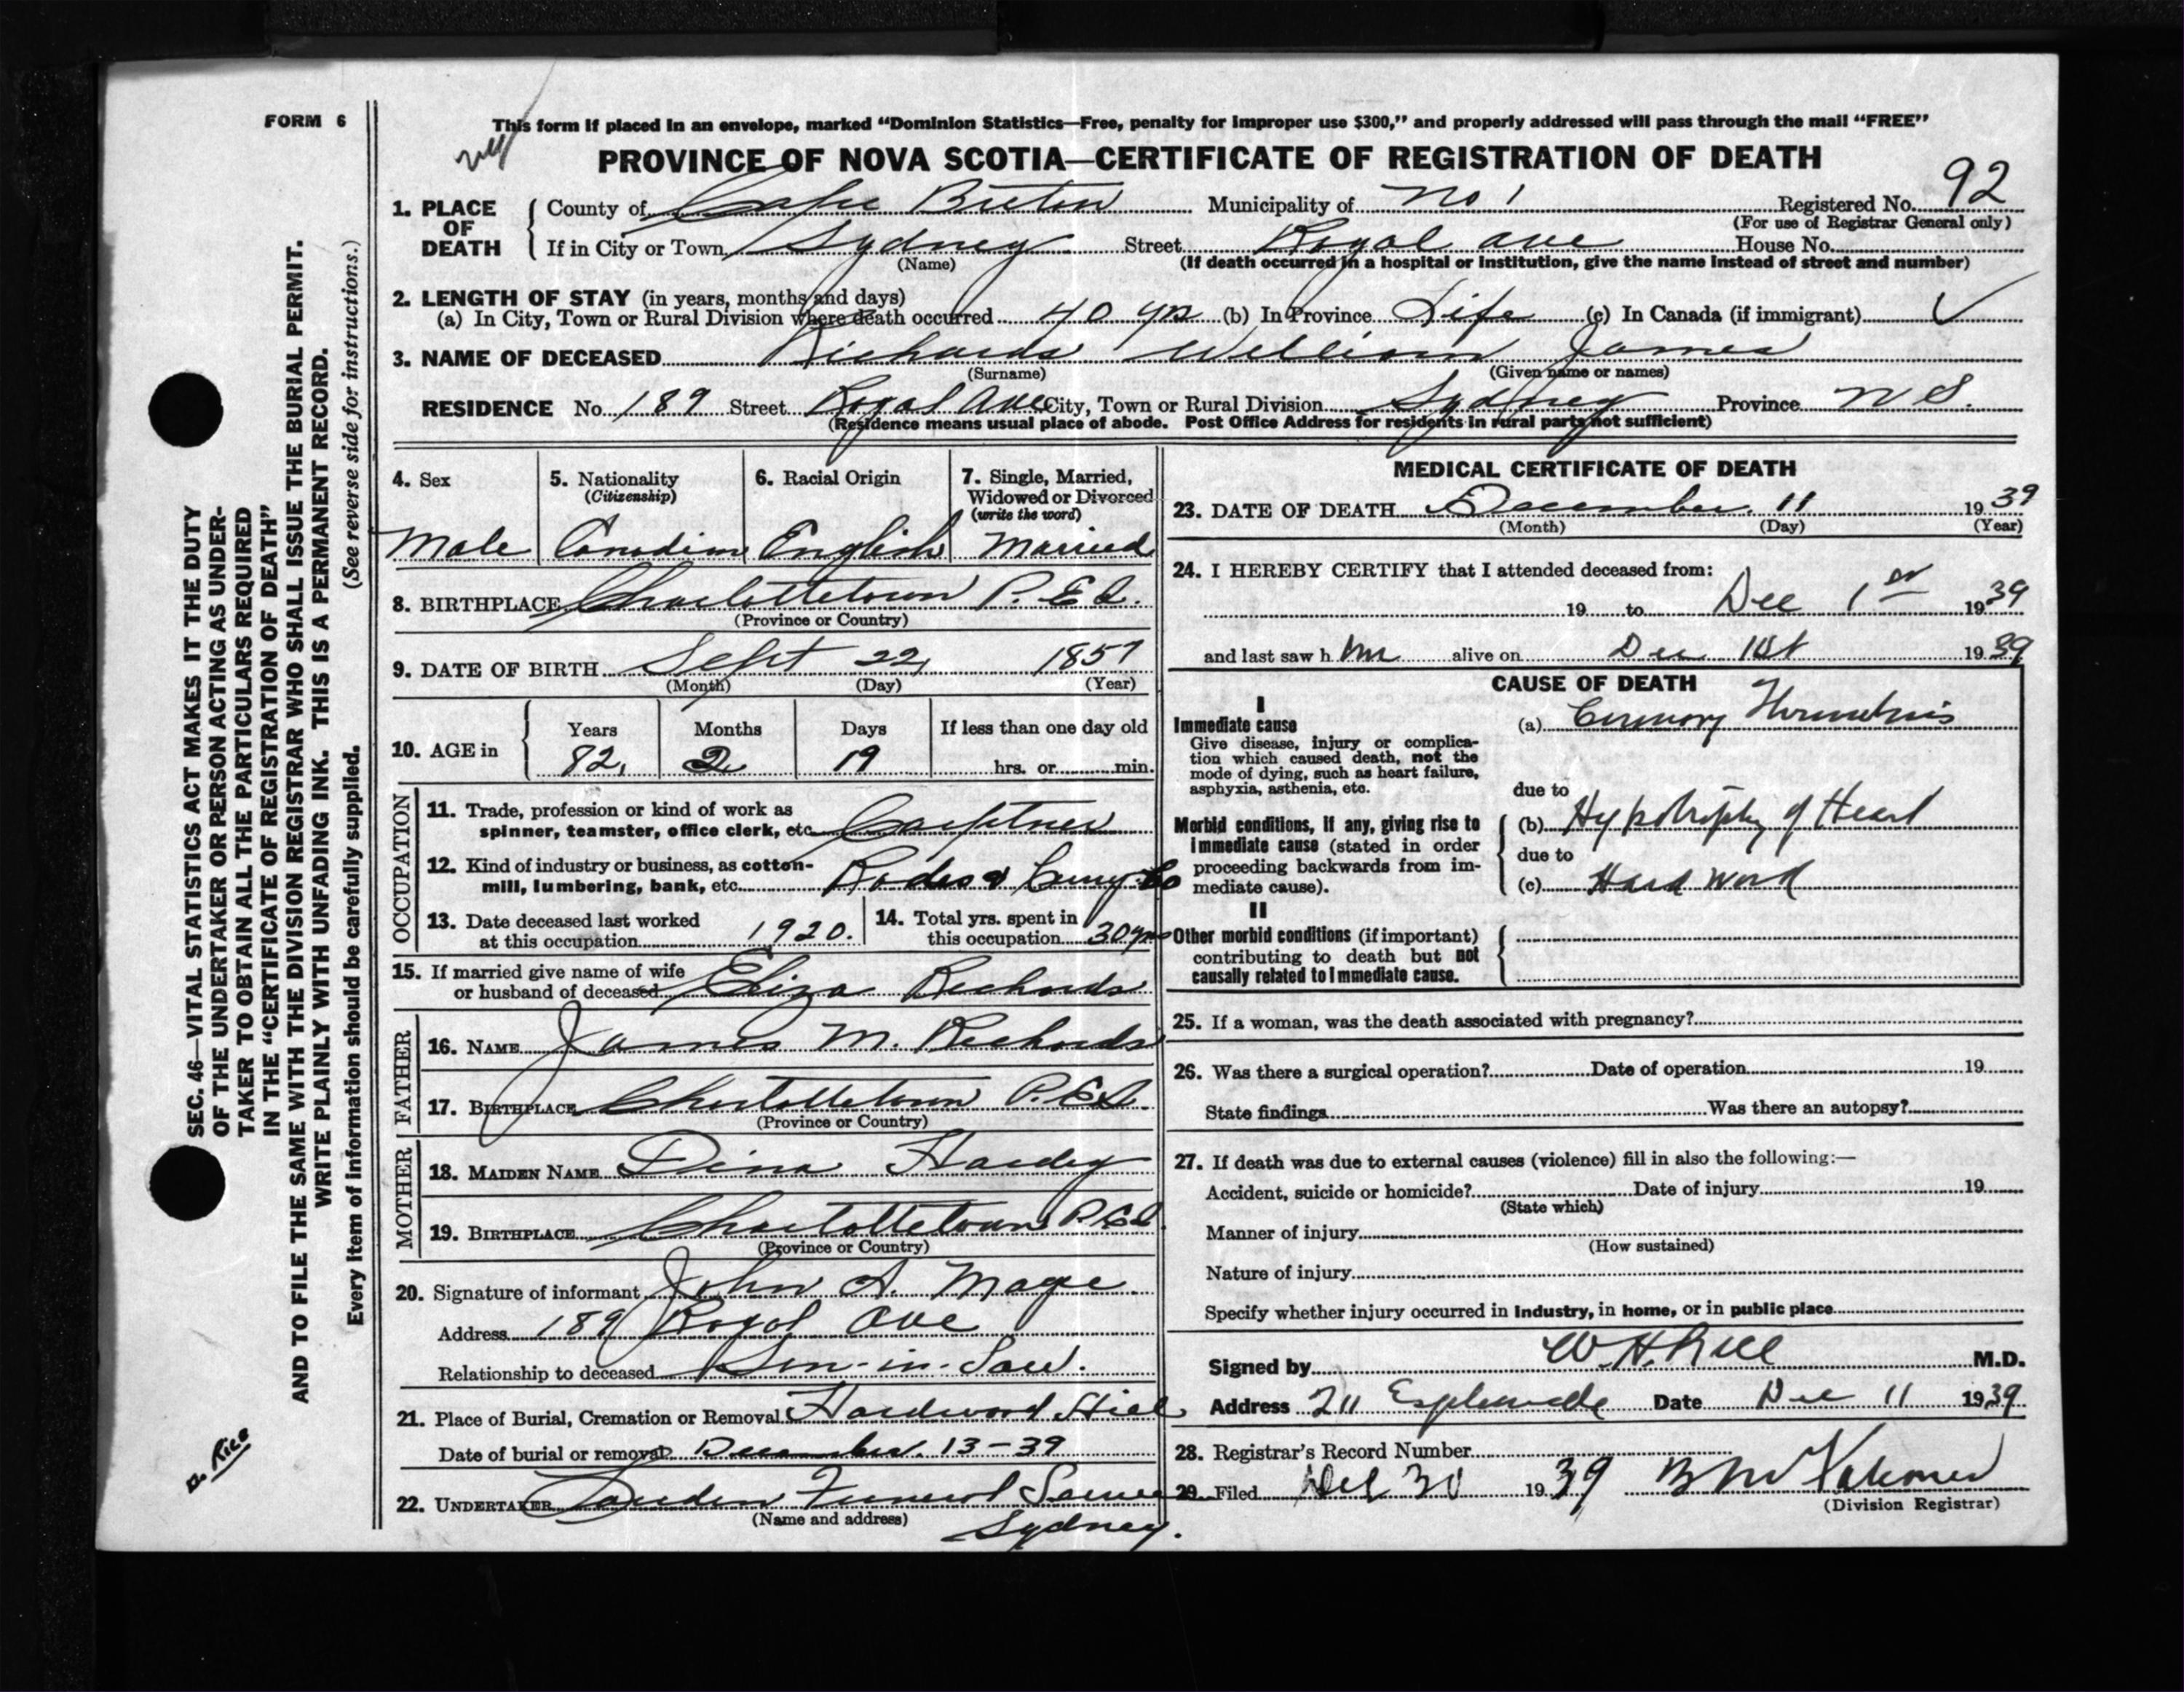 FORM 6
This form if placed in an envelope, marked "Dominion Statistics—Free, penalty for improper use $300," and properly addressed will pass through the mail "FREE"
PROVINCE OF NOVA SCOTIA—CERTIFICATE OF REGISTRATION OF DEATH
92
1. PLACE OF DEATH
County of Cape Breton Municipality of No 1 Registered No.
(For use of Registrar General only)
If in City or Town Sydney Street Royal Ave House No.
(Name) (If death occurred in a hospital or institution, give the name instead of street and number)
2. LENGTH OF STAY (in years, months and days)
(a) In City, Town or Rural Division where death occurred 40 yrs (b) In Province Life (c) In Canada (if immigrant) ✓
3. NAME OF DECEASED Richards William James
(Surname) (Given name or names)
RESIDENCE No. 189 Street Royal Ave City, Town or Rural Division Sydney Province N S.
(Residence means usual place of abode. Post Office Address for residents in rural parts not sufficient)
4. Sex 5. Nationality 6. Racial Origin 7. Single, Married,
(Citizenship) Widowed or Divorced
(write the word)
Male Canadian English Married
8. BIRTHPLACE Charlottetown P.E.I.
(Province or Country)
9. DATE OF BIRTH Sept 22, 1857
(Month) (Day) (Year)
10. AGE in Years Months Days If less than one day old
82, 2 19 hrs. or min.
OCCUPATION
11. Trade, profession or kind of work as
spinner, teamster, office clerk, etc. Carptner
12. Kind of industry or business, as cotton-
mill, lumbering, bank, etc. Rodes & Curry Co
13. Date deceased last worked
at this occupation 1920.
14. Total yrs. spent in
this occupation 30 yrs
15. If married give name of wife
or husband of deceased Eliza Richards
FATHER
16. NAME James M. Richards
17. BIRTHPLACE Charlottetown P.E.I.
(Province or Country)
MOTHER
18. MAIDEN NAME Dina Hardy
19. BIRTHPLACE Charlottetown P.E.I
(Province or Country)
20. Signature of informant John A. Magee
Address 189 Royal Ave
Relationship to deceased Son-in-Law.
21. Place of Burial, Cremation or Removal Hardwood Hill
Date of burial or removal December. 13-39
22. UNDERTAKER Funeral Service
(Name and address) Sydney.
MEDICAL CERTIFICATE OF DEATH
23. DATE OF DEATH December 11 1939
(Month) (Day) (Year)
24. I HEREBY CERTIFY that I attended deceased from:
19 to Dec 1st 1939
and last saw him alive on Dec 1st 1939
CAUSE OF DEATH
I
Immediate cause (a) Coronary Thrombosis
Give disease, injury or complica-
tion which caused death, not the
mode of dying, such as heart failure,
asphyxia, asthenia, etc.
due to
Morbid conditions, if any, giving rise to
immediate cause (stated in order
proceeding backwards from im-
mediate cause).
(b) Hypotrophy of Heart
due to
(c) Hard Work
II
Other morbid conditions (if important)
contributing to death but not
causally related to immediate cause.
25. If a woman, was the death associated with pregnancy?
26. Was there a surgical operation? Date of operation 19
State findings Was there an autopsy?
27. If death was due to external causes (violence) fill in also the following:—
Accident, suicide or homicide? Date of injury 19
(State which)
Manner of injury
(How sustained)
Nature of injury
Specify whether injury occurred in industry, in home, or in public place
Signed by W. H. Rice M.D.
Address 211 Esplanade Date Dec 11 1939
28. Registrar's Record Number
29. Filed Dec 30 1939
(Division Registrar)
SEC. 46—VITAL STATISTICS ACT MAKES IT THE DUTY
OF THE UNDERTAKER OR PERSON ACTING AS UNDER-
TAKER TO OBTAIN ALL THE PARTICULARS REQUIRED
IN THE "CERTIFICATE OF REGISTRATION OF DEATH"
AND TO FILE THE SAME WITH THE DIVISION REGISTRAR WHO SHALL ISSUE THE BURIAL PERMIT.
WRITE PLAINLY WITH UNFADING INK. THIS IS A PERMANENT RECORD.
Every item of information should be carefully supplied. (See reverse side for instructions.)
Rice